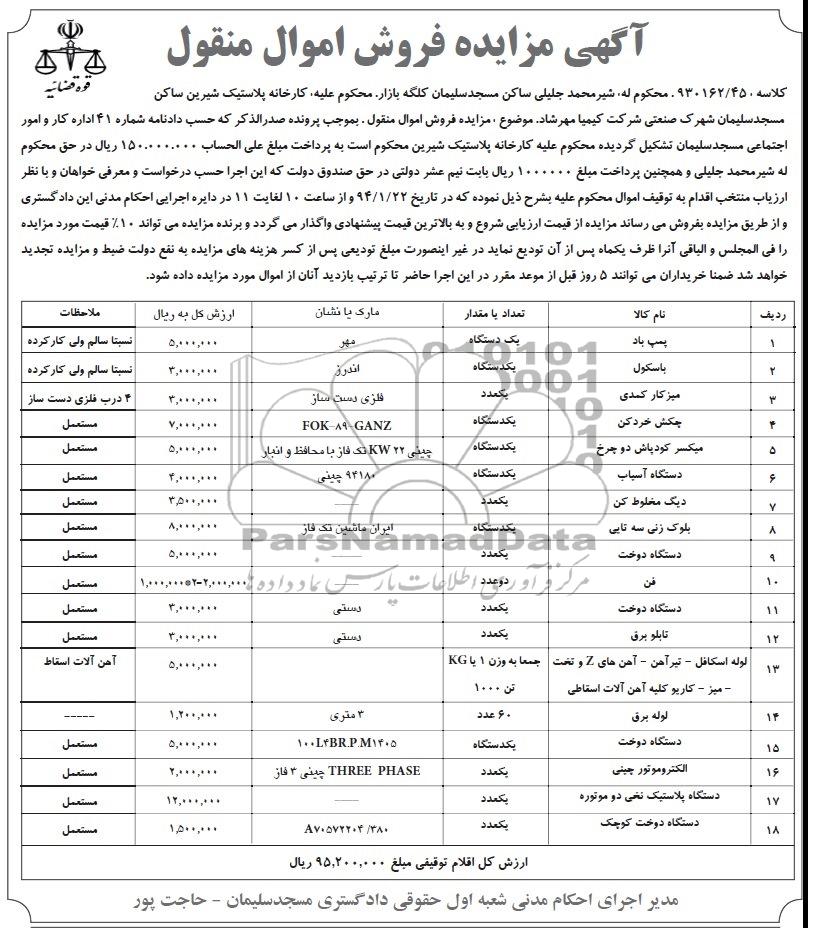 آگهی مزایده فروش اموال منقول
قوه قضائیه
کلاسه ۹۳۰۱۶۲/۴۵۰. محکوم له: شیرمحمد جلیلی ساکن مسجدسلیمان کلگه بازار. محکوم علیه: کارخانه پلاستیک شیرین ساکن
مسجدسلیمان شهرک صنعتی شرکت کیمیا مهرشاد. موضوع : مزایده فروش اموال منقول . بموجب پرونده صدرالذکر که حسب دادنامه شماره ۴۱ اداره کار و امور
اجتماعی مسجدسلیمان تشکیل گردیده محکوم علیه کارخانه پلاستیک شیرین محکوم است به پرداخت مبلغ علی الحساب ۱۵۰.۰۰۰.۰۰۰ ریال در حق محکوم
له شیرمحمد جلیلی و همچنین پرداخت مبلغ ۱۰۰۰۰۰۰ ریال بابت نیم عشر دولتی در حق صندوق دولت که این اجرا حسب درخواست و معرفی خواهان و با نظر
ارزیاب منتخب اقدام به توقیف اموال محکوم علیه بشرح ذیل نموده که در تاریخ ۹۴/۱/۲۲ و از ساعت ۱۰ لغایت ۱۱ در دایره اجرایی احکام مدنی این دادگستری
و از طریق مزایده بفروش می رساند مزایده از قیمت ارزیابی شروع و به بالاترین قیمت پیشنهادی واگذار می گردد و برنده مزایده می تواند ۱۰٪ قیمت مورد مزایده
را فی المجلس و الباقی آنرا ظرف یکماه پس از آن تودیع نماید در غیر اینصورت مبلغ تودیعی پس از کسر هزینه های مزایده به نفع دولت ضبط و مزایده تجدید
خواهد شد ضمنا خریداران می توانند ۵ روز قبل از موعد مقرر در این اجرا حاضر تا ترتیب بازدید آنان از اموال مورد مزایده داده شود.
ردیف نام کالا تعداد یا مقدار مارک یا نشان ارزش کل به ریال ملاحظات
۱ پمپ باد یک دستگاه مهر ۵,۰۰۰,۰۰۰ نسبتا سالم ولی کارکرده
۲ باسکول یکدستگاه اندرز ۳,۰۰۰,۰۰۰ نسبتا سالم ولی کارکرده
۳ میزکار کمدی یکعدد فلزی دست ساز ۳,۰۰۰,۰۰۰ ۴ درب فلزی دست ساز
۴ چکش خردکن یکدستگاه FOK-۸۹-GANZ ۷,۰۰۰,۰۰۰ مستعمل
۵ میکسر کودپاش دو چرخ یکدستگاه چینی KW ۲۲ تک فاز با محافظ و انبار ۵,۰۰۰,۰۰۰ مستعمل
۶ دستگاه آسیاب یکدستگاه ۹۴۱۸۰ چینی ۴,۰۰۰,۰۰۰ مستعمل
۷ دیگ مخلوط کن یکعدد ــــــ ۳,۵۰۰,۰۰۰ مستعمل
۸ بلوک زنی سه تایی یکدستگاه ایران ماشین تک فاز ۸,۰۰۰,۰۰۰ مستعمل
۹ دستگاه دوخت یکعدد ــــــ ۵,۰۰۰,۰۰۰ مستعمل
۱۰ فن دوعدد ــــــ ۱,۰۰۰,۰۰۰*۲-۲,۰۰۰,۰۰۰ مستعمل
۱۱ دستگاه دوخت یکعدد دستی ۳,۰۰۰,۰۰۰ مستعمل
۱۲ تابلو برق یکعدد دستی ۳,۰۰۰,۰۰۰ مستعمل
۱۳ لوله اسکافل - تیرآهن - آهن های Z و تخت جمعا به وزن ۱ یا KG ۵,۰۰۰,۰۰۰ آهن آلات اسقاط
- میز - کاریو کلیه آهن آلات اسقاطی تن ۱۰۰۰
۱۴ لوله برق ۶۰ عدد ۳ متری ۱,۲۰۰,۰۰۰ -----
۱۵ دستگاه دوخت یکدستگاه ۱۰۰L۴BR.P.M۱۴۰۵ ۵,۰۰۰,۰۰۰ مستعمل
۱۶ الکتروموتور چینی یکعدد THREE PHASE چینی ۳ فاز ۲,۰۰۰,۰۰۰ مستعمل
۱۷ دستگاه پلاستیک نخی دو موتوره یکعدد ــــــ ۱۲,۰۰۰,۰۰۰ مستعمل
۱۸ دستگاه دوخت کوچک یکعدد A۷۰۵۷۲۲۰۴ /۳۸۰ ۱,۵۰۰,۰۰۰ مستعمل
ارزش کل اقلام توقیفی مبلغ ۹۵,۲۰۰,۰۰۰ ریال
مدیر اجرای احکام مدنی شعبه اول حقوقی دادگستری مسجدسلیمان - حاجت پور
ParsNamadData
مرکز فرآوری اطلاعات پارس نماد داده ها